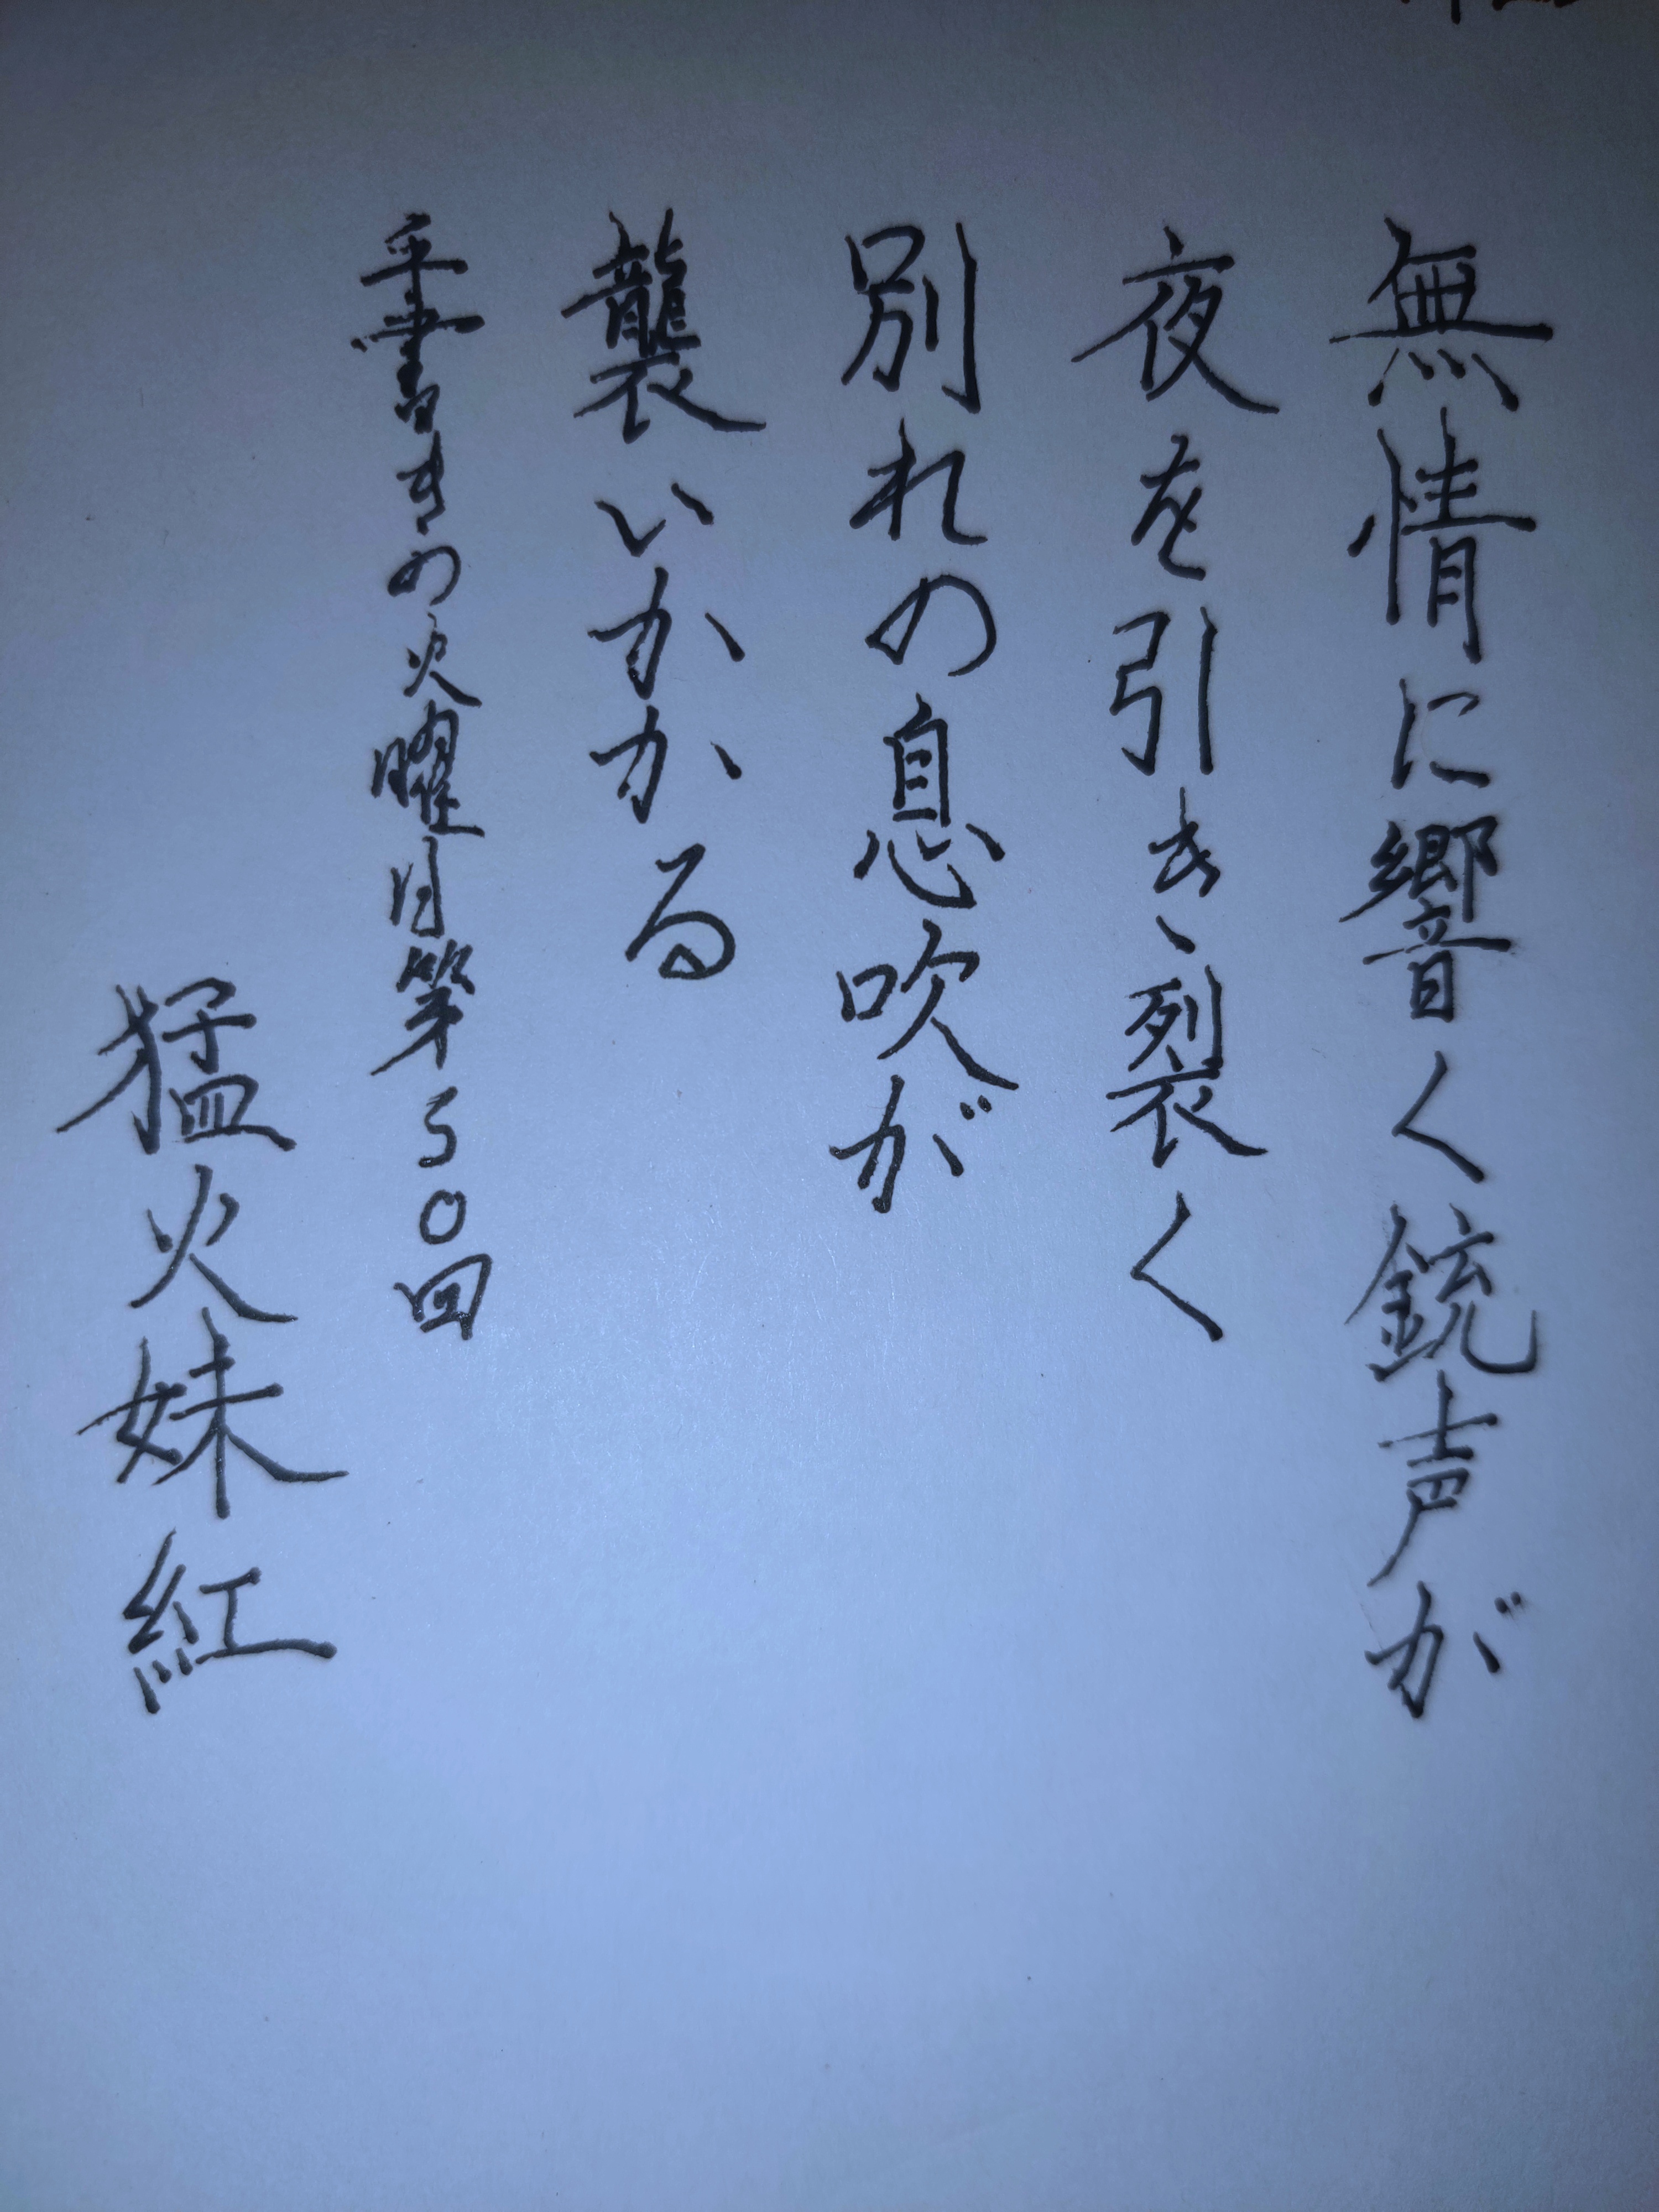 無情に響く銃声が
夜を引き裂く
別れの息吹が
襲いかかる
手書きの火曜日第50回
猛火妹紅